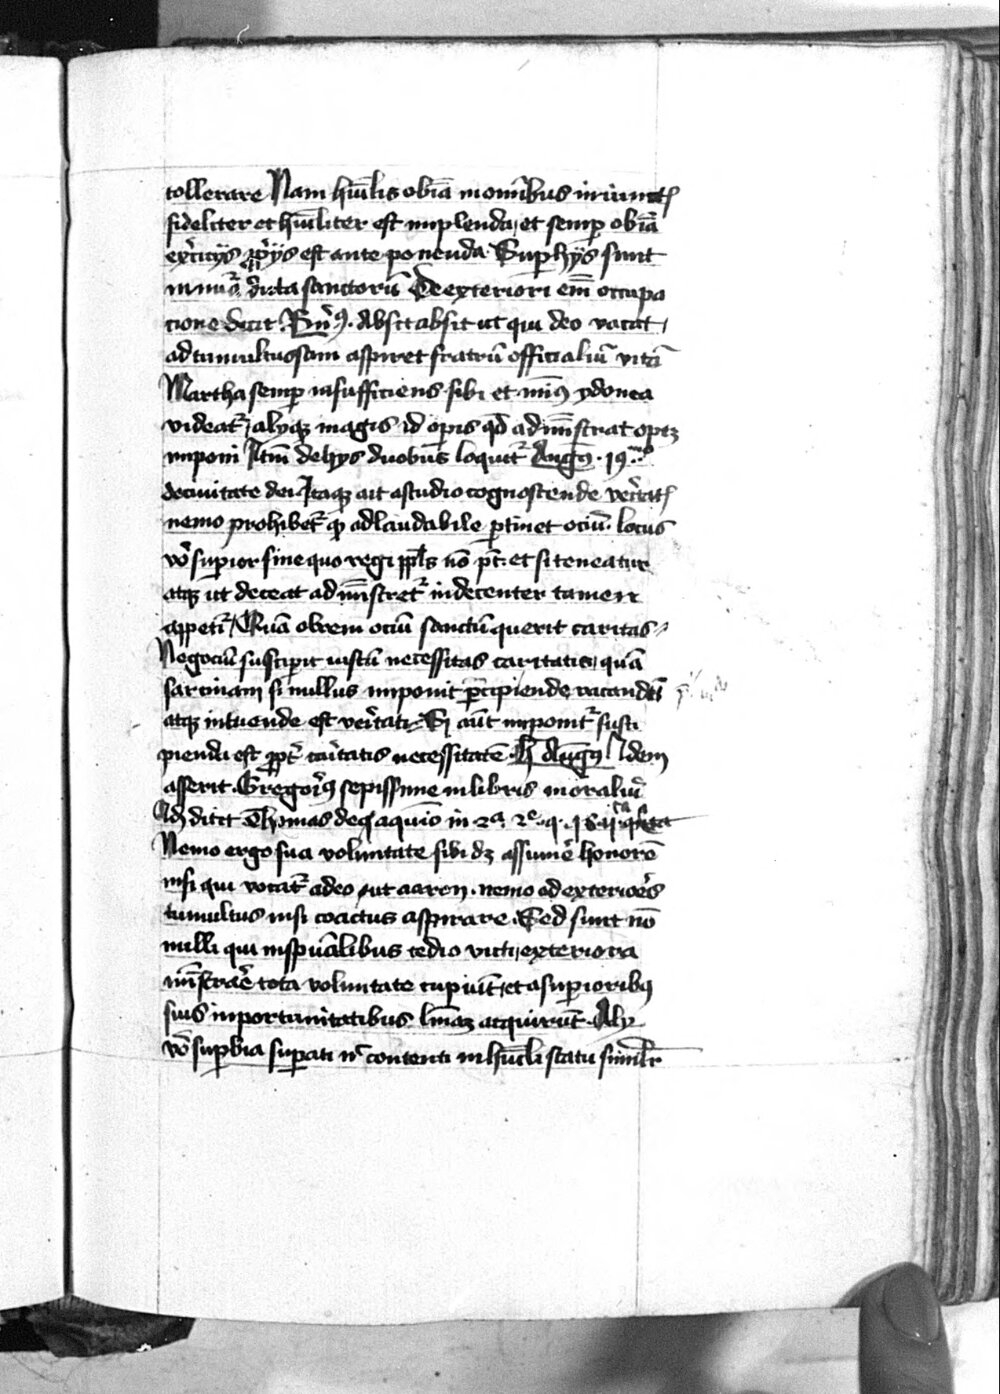 tollerare Nam hūilis obīa in om̄ibus iniunct̄
fideliter et hūiliter est implenda et semp̱ obīa
ex̾citijs p̱p̾ijs est ante ponenda Sup hijs sunt
dicta sanctorū De exteriori em̄ occupa
cione dicit B̾n̾9. Absit absit ut qui deo vacat
ad tumultuosam aspiret fratrū officialiū vitā
Martha semp̱ insufficiens sibi et min9 ydonea
videat̾ alijsqꝫ magis id op̱is qd̄ ad mīstrat optꝫ
imponi Itm̄ de hijs duobus loquit̾ Aug9 19
de ciuitate dei Itaqꝫ ait a studio cognoscende ver̾itat̄
nemo prohibet̾ qꝫ ad laudabile ptinet ociū. locus
vo̾ sup̱ior sine quo regi ppl̄s nō pt̄. et si teneatur
atqꝫ ut deceat ad mīstret̾ indecenter tamen
appetit̾ Quā obrem ociū sanctū querit caritas
Negociū suscipit iustū necessitas caritatis quā
sarcinam si nullus imponit p̄cipiende vacandū
atqꝫ intuende est ver̾itati Si aūt imponit̾ susci
pienda est ppt̾ car̾itatis necessitatē H̄ Aug9 Idem
asserit Gregor̾i9 sepissime in libris moraliū
Ad dicit Thomas de aquīo in 2a 2e q.
Nemo ergo sua voluntate sibi dꝫ assume̾ honorē
nisi qui vocat̾ a deo ut aaron. nemo ad exterio̾es
tumultus nisi coactus aspirare. Sed sunt nō
nulli qui in spūalibus tedio victi exteriora
mīstrar̾e tota voluntate cupiūt et a sup̱ioribꝰ
suis inportunitatibus acquirūt. Alij
vo̾ sup̱bia sup̱ati n̄ contenti in hūili statu simil̄r